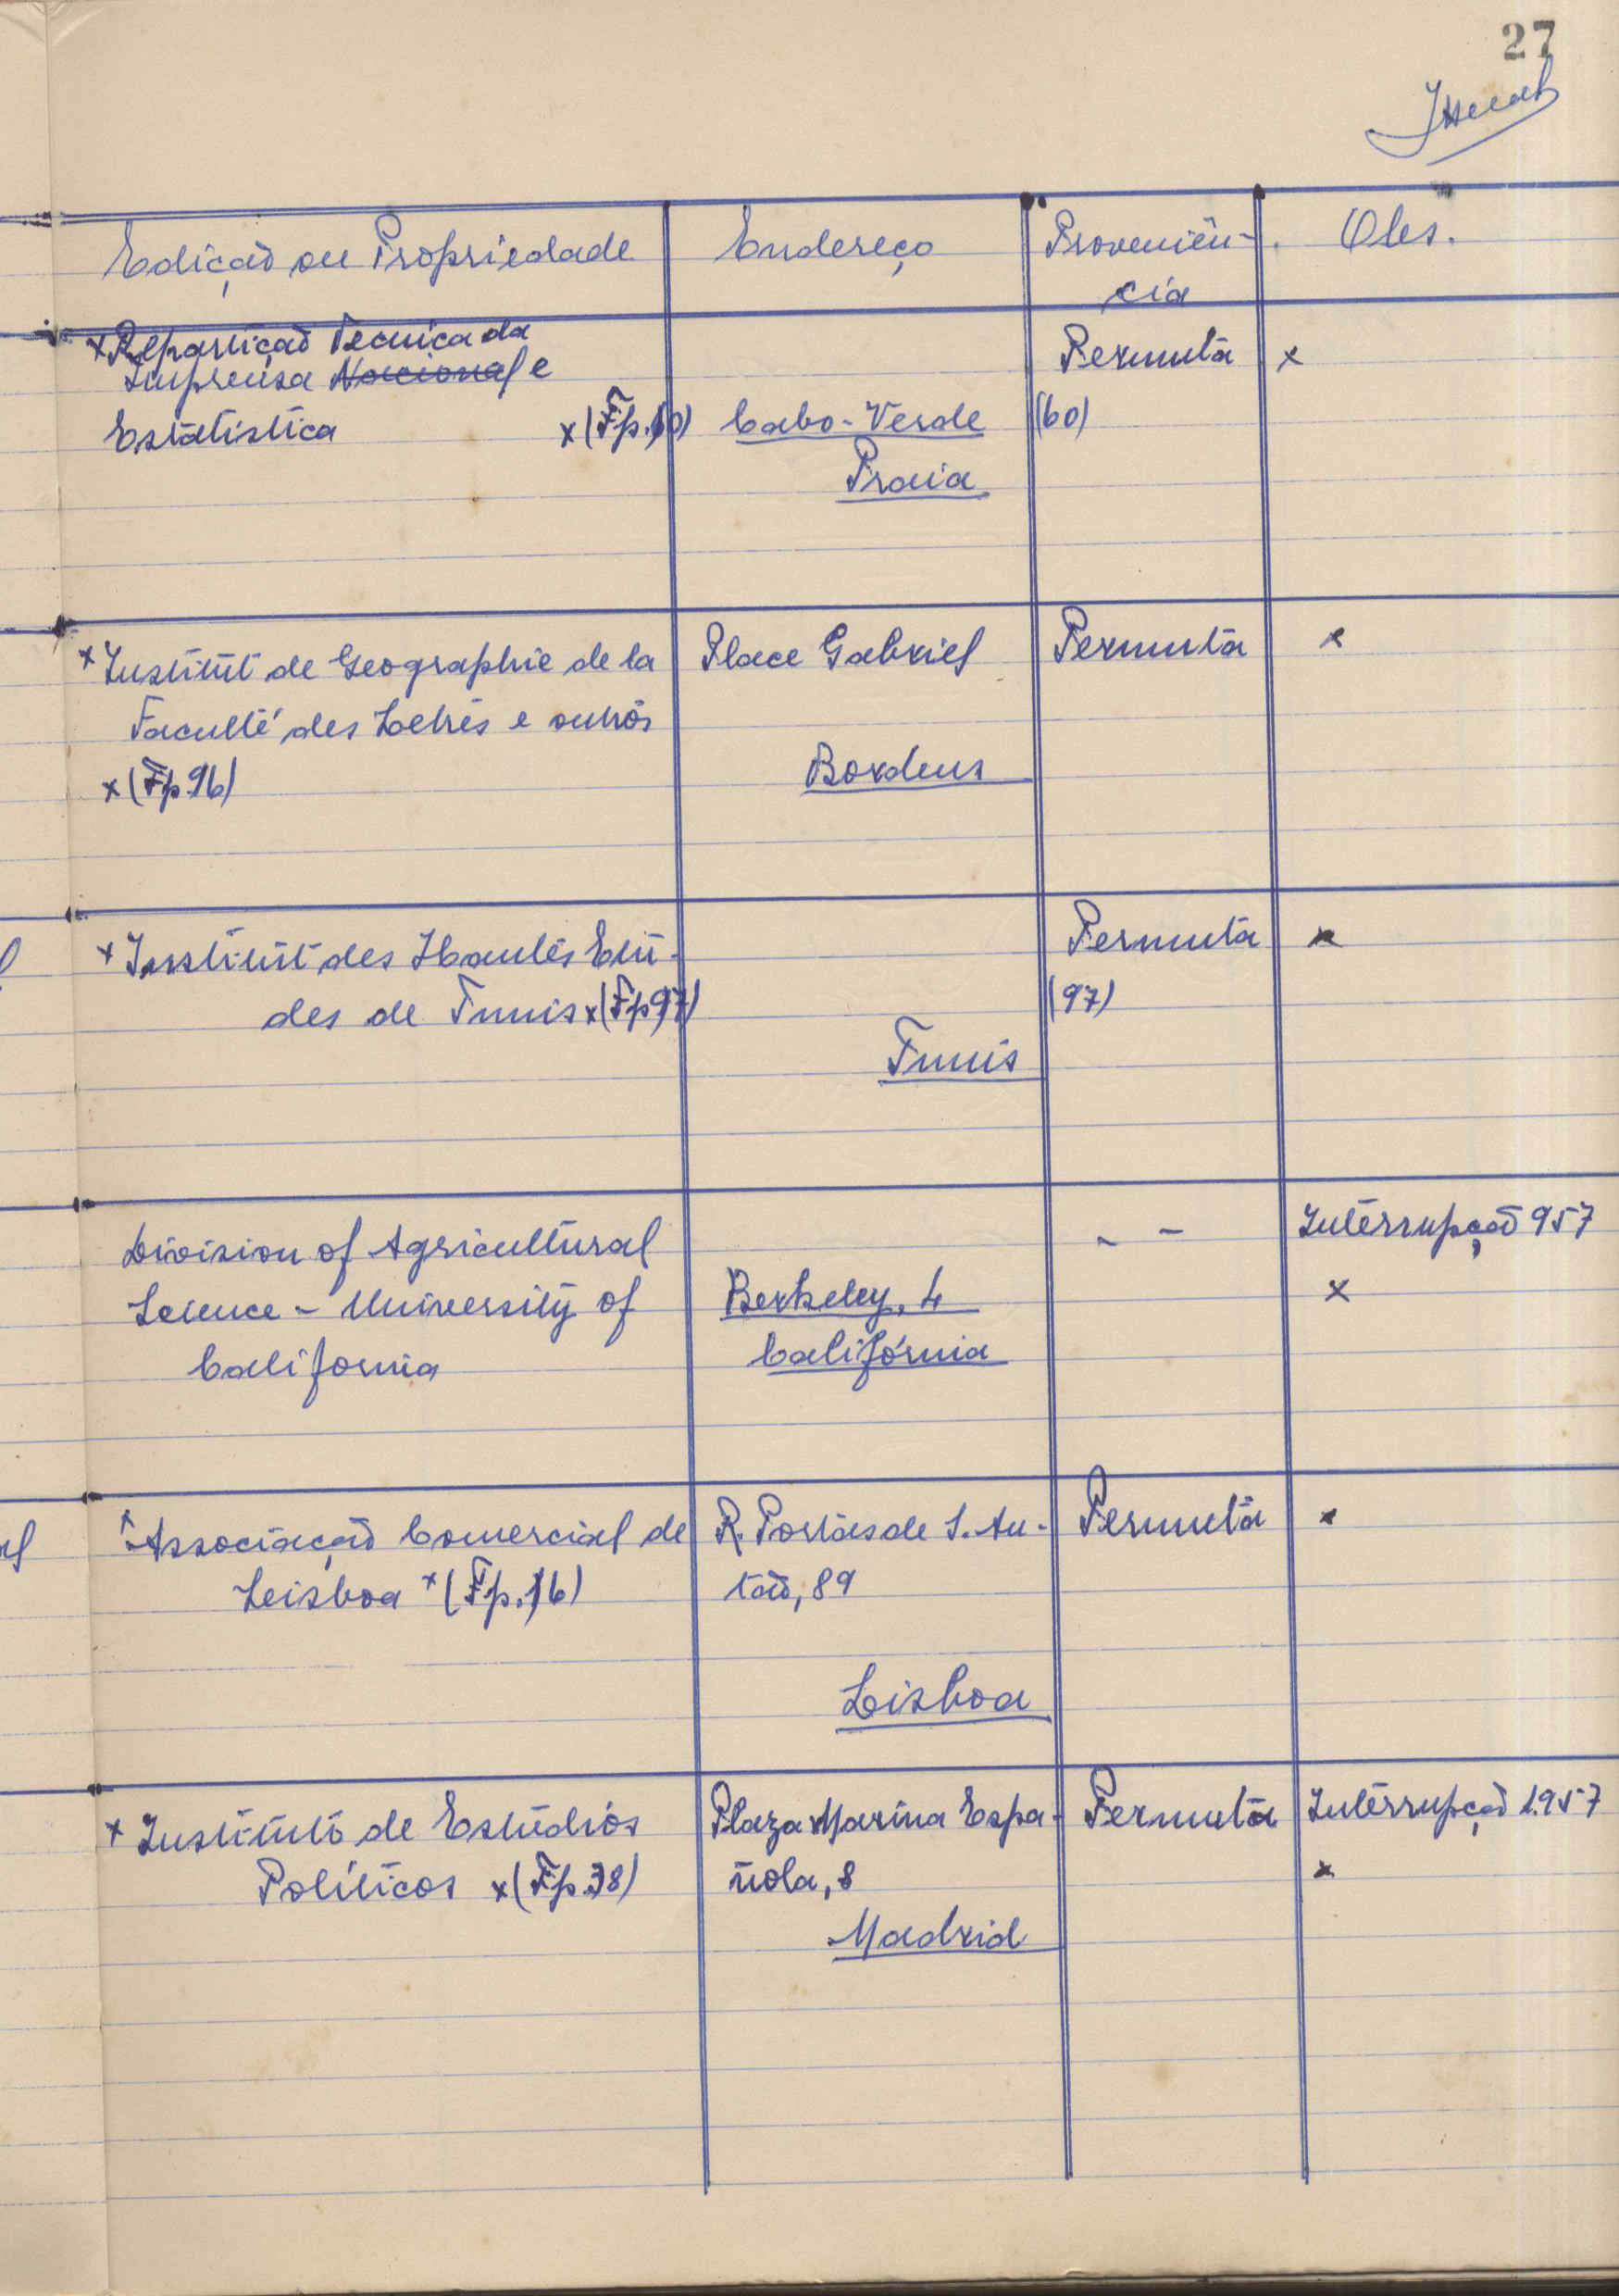 27
Edição ou Propriedade Endereço Proveniên- Obs.
cia
x Repartição Tecnica da
Imprensa Nacional e Permuta x
Estatística x (Fp.60) Cabo-Verde (60)
Praia
x Institut de Geographie de la Place Gabriel Permuta x
Faculté des Letres e outros
x (Fp.96) Bordeus
x Institut des Hautes Etu- Permuta x
des de Tunis x (Fp 97) (97)
Tunis
Division of Agricultural - - Interrupção 957
Science - University of Berkeley, 4 x
California Califórnia
x Associação Comercial de R. Portas de S. An- Permuta x
Leisboa x (Fp.16) tão, 89
Lisboa
x Instituto de Estudios Plaza Marina Espa- Permuta Interrupção 1957
Políticos x (Fp.38) ñola, 8 x
Madrid